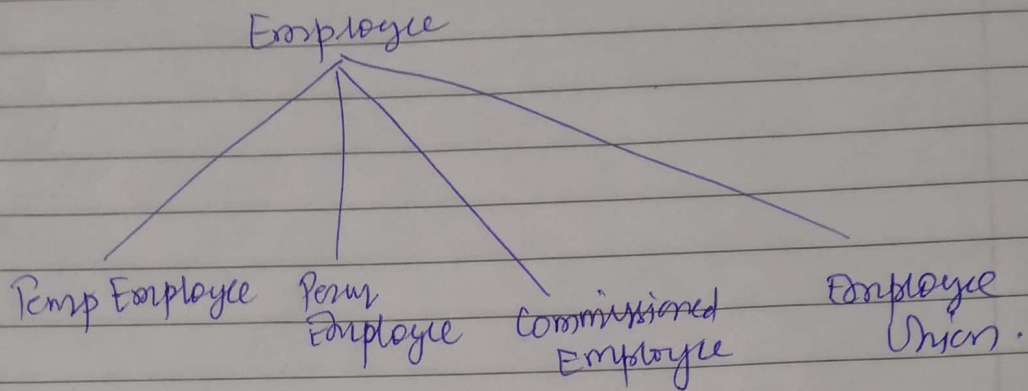 Employee
Temp Employee
Perm
Employee
Commissioned
Employee
Employee
Union.